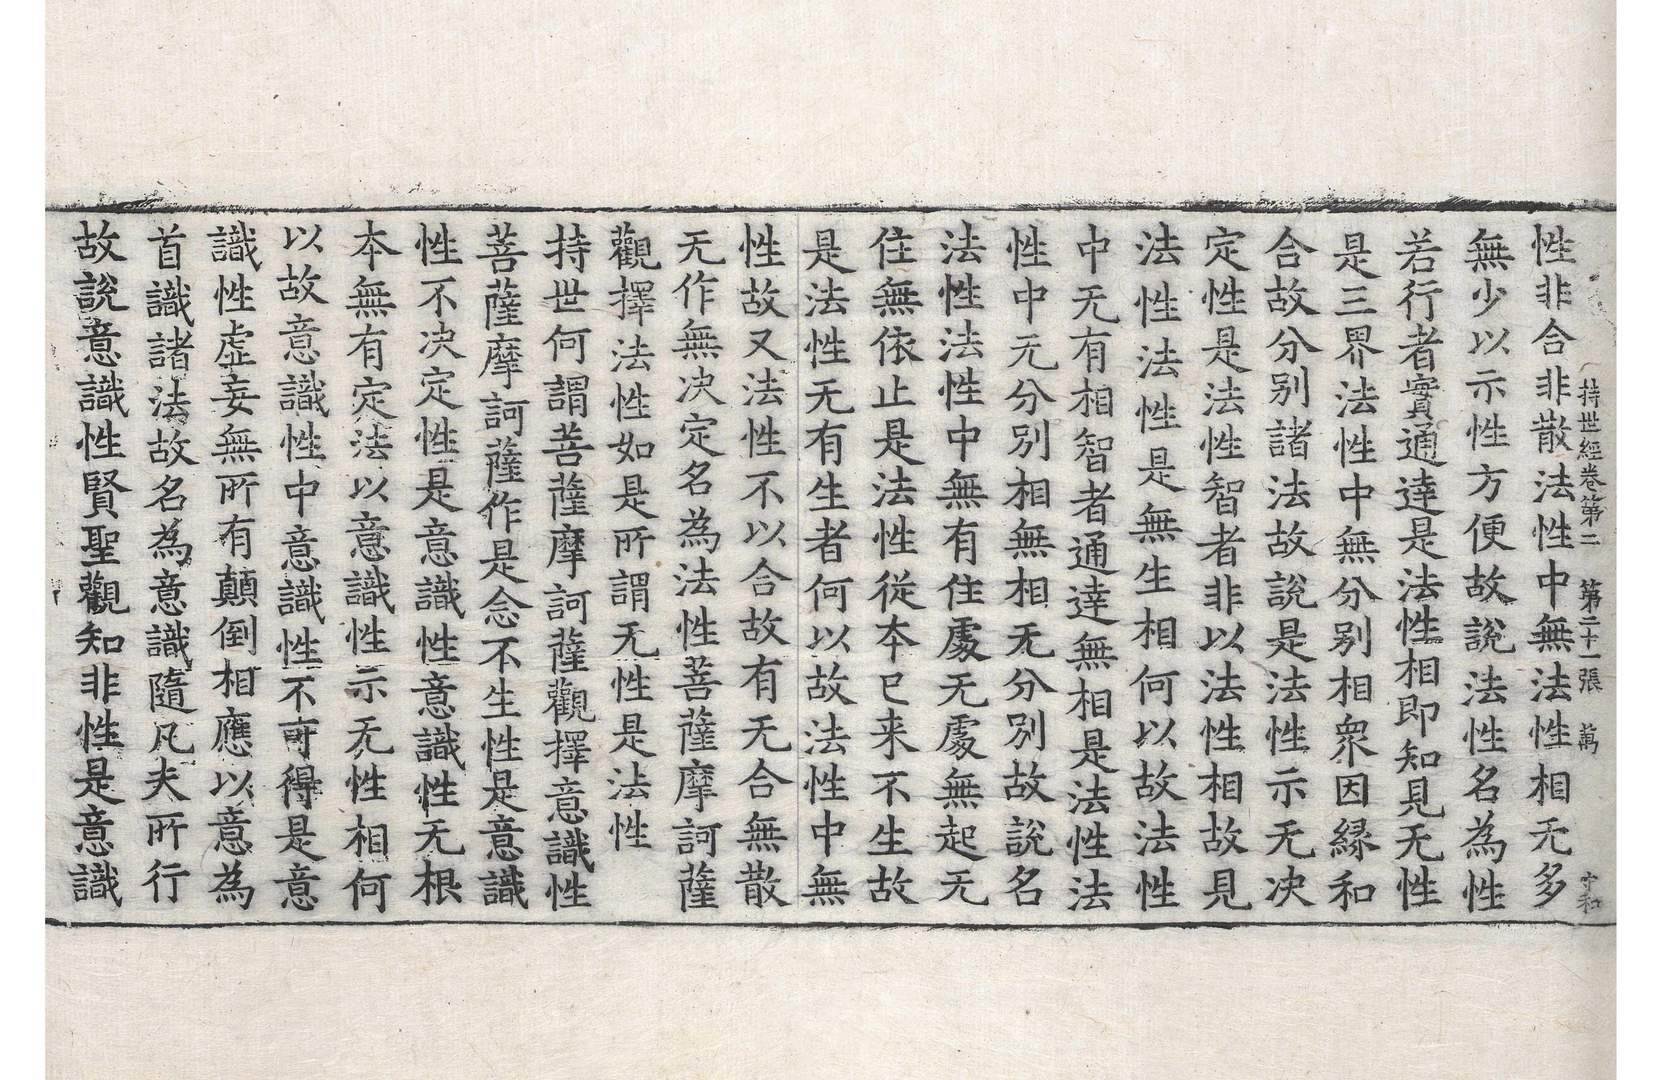 持世經卷第二 第二十一張 萬
性非合非散法性中無法性相无多
無少以示性方便故說法性名為性
若行者實通達是法性相即知見无性
是三界法性中無分別相衆因緣和
合故分別諸法故說是法性示无决
定性是法性智者非以法性相故見
法性法性是無生相何以故法性
中无有相智者通達無相是法性法
性中无分別相無相无分別故說名
法性法性中無有住處无處無起无
住無依止是法性從本已来不生故
是法性无有生者何以故法性中無
性故又法性不以合故有无合無散
无作無决定名為法性菩薩摩訶薩
觀擇法性如是所謂无性是法性
持世何謂菩薩摩訶薩觀擇意識性
菩薩摩訶薩作是念不生性是意識
性不决定性是意識性意識性无根
本無有定法以意識性示无性相何
以故意識性中意識性不可得是意
識性虛妄無所有顛倒相應以意為
首識諸法故名為意識隨凡夫所行
故說意識性賢聖觀知非性是意識